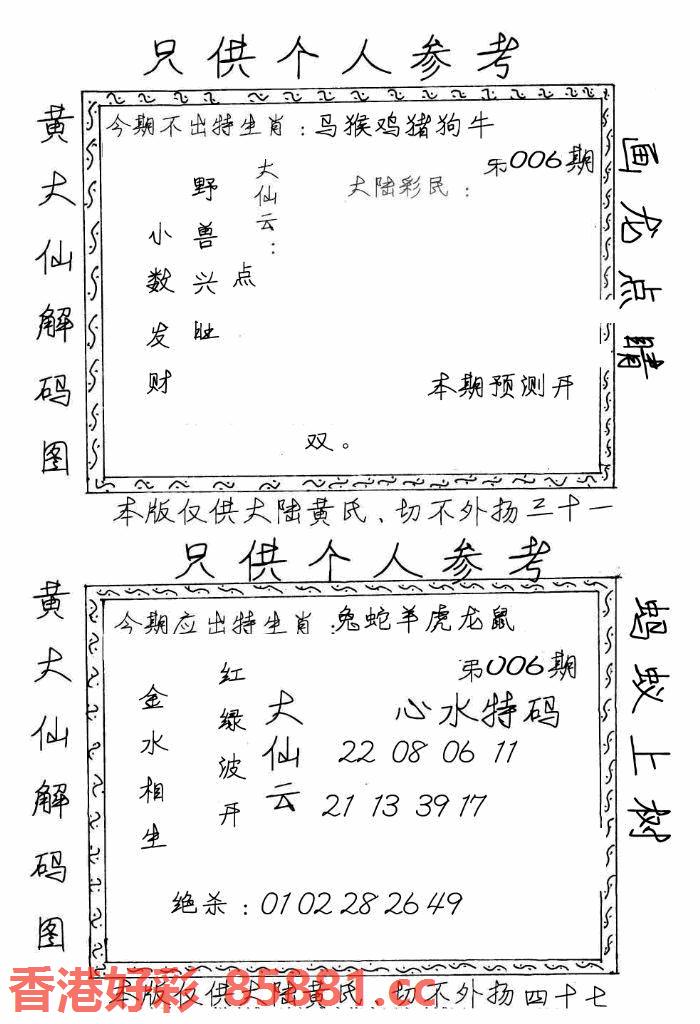 只供个人参考
黄大仙解码图
今期不出特生肖：马猴鸡猪狗牛
第006期
大陆彩民：
大仙云：
点
野兽兴旺
小数发财
本期预测开
双。
画龙点睛
本版仅供大陆黄氏、切不外扬三十一
只供个人参考
黄大仙解码图
今期应出特生肖：兔蛇羊虎龙鼠
第006期
心水特码
大仙云
22 08 06 11
21 13 39 17
红绿波开
金水相生
绝杀：01 02 28 26 49
蚂蚁上树
本版仅供大陆黄氏、切不外扬四十七
香港好彩 85881.cc